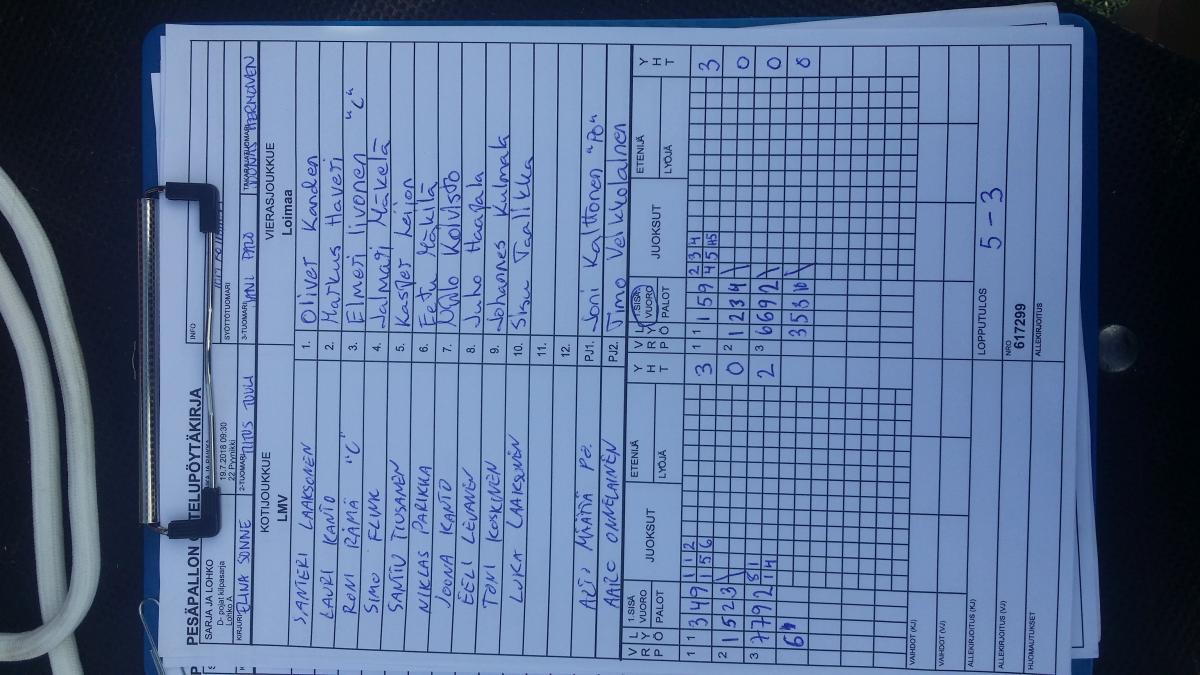 PESÄPALLON OTTELUPÖYTÄKIRJA
SARJA JA LOHKO
D- pojat kilpasarja
Lohko A
19.7.2018 09:30
22 Pyynikki
INFO
SYÖTTÖTUOMARI
KIRJURI ELINA SONNE
2-TUOMARI TIITUS TUULI
3-TUOMARI
TAKARAJATUOMARI
KOTIJOUKKUE
LMV
VIERASJOUKKUE
Loimaa
SANTERI LAAKSONEN 1. Oliver Kanden
LAURI KANTO 2. Markus Haveri
RONI RÄMÄ "C" 3. Elmeri Iivonen "C"
SIMO FLINK 4. Jalmari Mäkelä
SANTTU TIUSANEN 5. Kasper Leijon
NIKLAS PARIKKA 6. Eetu Mäkilä
JOONA KANTO 7. Niilo Koivisto
EELI LEVÄNEN 8. Juho Haapala
TONI KOSKINEN 9. Johannes Kulmala
LUKA LAAKSONEN 10. Sisu Taalikka
11.
12.
MÄÄTTÄ PJ1. Joni Kalttonen "PÖ"
AARO ONNELAINEN PJ2. Timo Velkkolainen
VRO LYP 1.SISÄ VUORO PALOT JUOKSUT ETENIJÄ LYÖJÄ YHT
VRO LYP 1.SISÄ VUORO PALOT JUOKSUT ETENIJÄ LYÖJÄ YHT
1 1 3 4 9 1 1 2 3
1 5 6
1 1 1 5 9 2 3 4 3
2 1 5 2 3 0
2 1 2 3 4 0
3 7 7 9 2 2
3 6 6 9 2 0
3 5 3 10 0
VAIHDOT (KJ)
VAIHDOT (VJ)
LOPPUTULOS 5 - 3
ALLEKIRJOITUS (KJ)
ALLEKIRJOITUS (VJ)
NRO
617299
HUOMAUTUKSET
ALLEKIRJOITUS